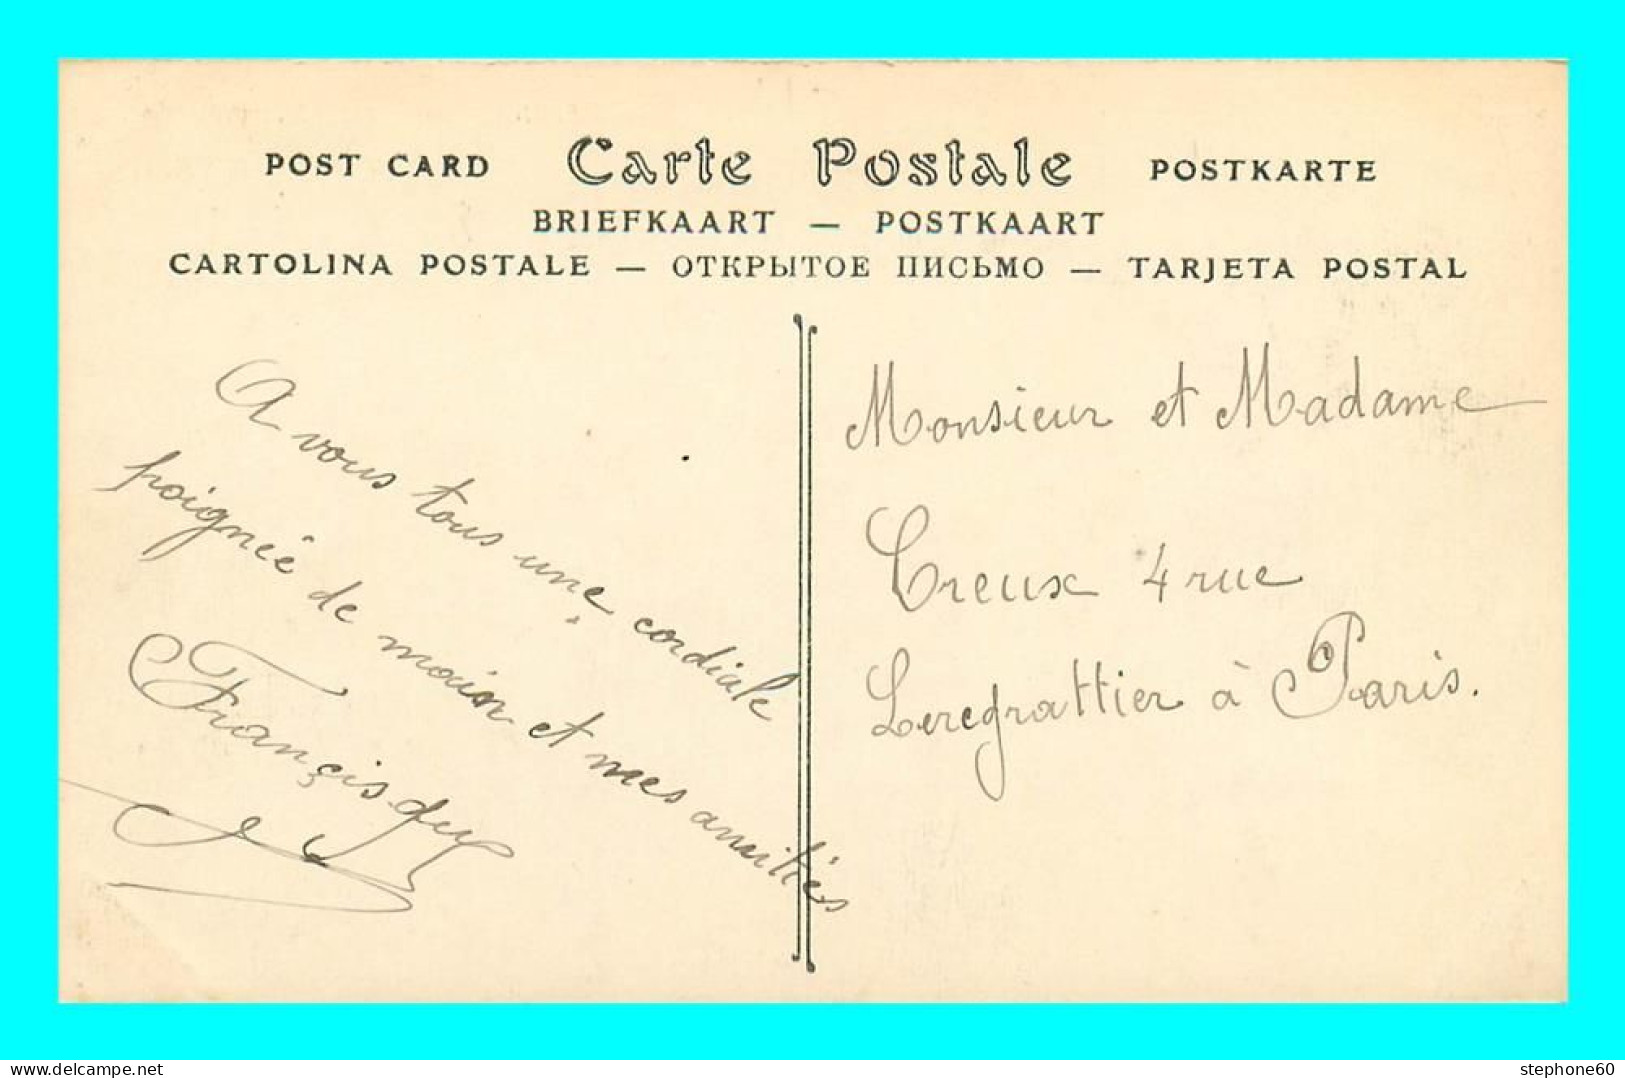 POST CARD Carte Postale POSTKARTE
BRIEFKAART — POSTKAART
CARTOLINA POSTALE — ОТКРЫТОЕ ПИСЬМО — TARJETA POSTAL
A vous tous une cordiale
poignée de main et mes amitiés
François
Monsieur et Madame
Creux 4 rue
Leregrattier à Paris.
www.delcampe.net
stephone60